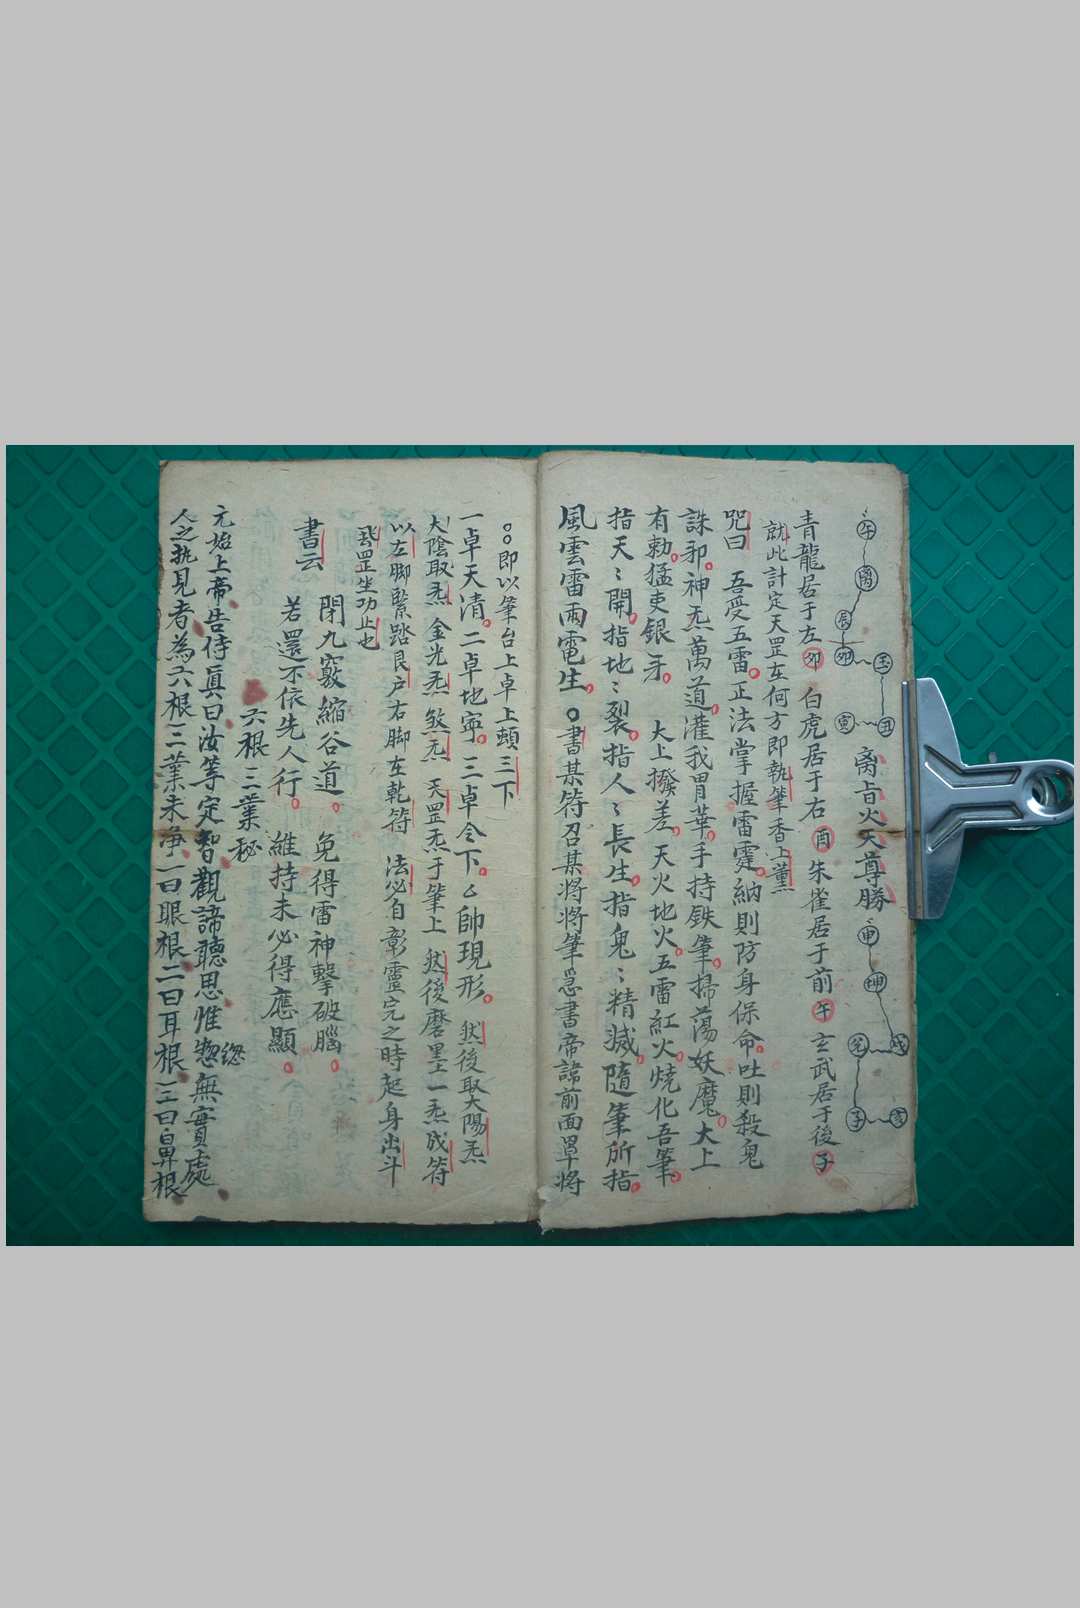 午
辰
卯
丑
寅
离旨火天尊勝
申
坤
兌
戌
子
亥
青龍居于左卯 白虎居于右酉 朱雀居于前午 玄武居于後子
就此計定天罡在何方即執筆香上薰
咒曰 吾受五雷正法掌握雷霆納則防身保命吐則殺鬼
誅邪神炁萬道灌我胃華手持鉄筆掃蕩妖魔大上
有勅猛吏銀牙 大上撥差天火地火五雷紅火燒化吾筆
指天〻開指地〻裂指人〻長生指鬼〻精滅隨筆所指
風雲雷雨電生〇書某符召某将将筆急書帝諱前面罩将
〇〇即以筆台上卓上頓三下
一卓天清二卓地寧三卓令下 帥現形 然後取太陽炁
太陰取炁金光炁煞炁 天罡炁于筆上 然後磨墨一炁成符
以左脚緊踏艮户右脚在乾符 法必自彰靈完之時起身出斗
罡坐功止也
書云
閉九竅縮谷道 免得雷神擊破腦
若還不依先人行 維持未必得應顯
六根三業秘
元始上帝告侍真曰汝等定智觀諦聽思惟惣無實處
総
人之执見者為六根三業未净一曰眼根二曰耳根三曰鼻根